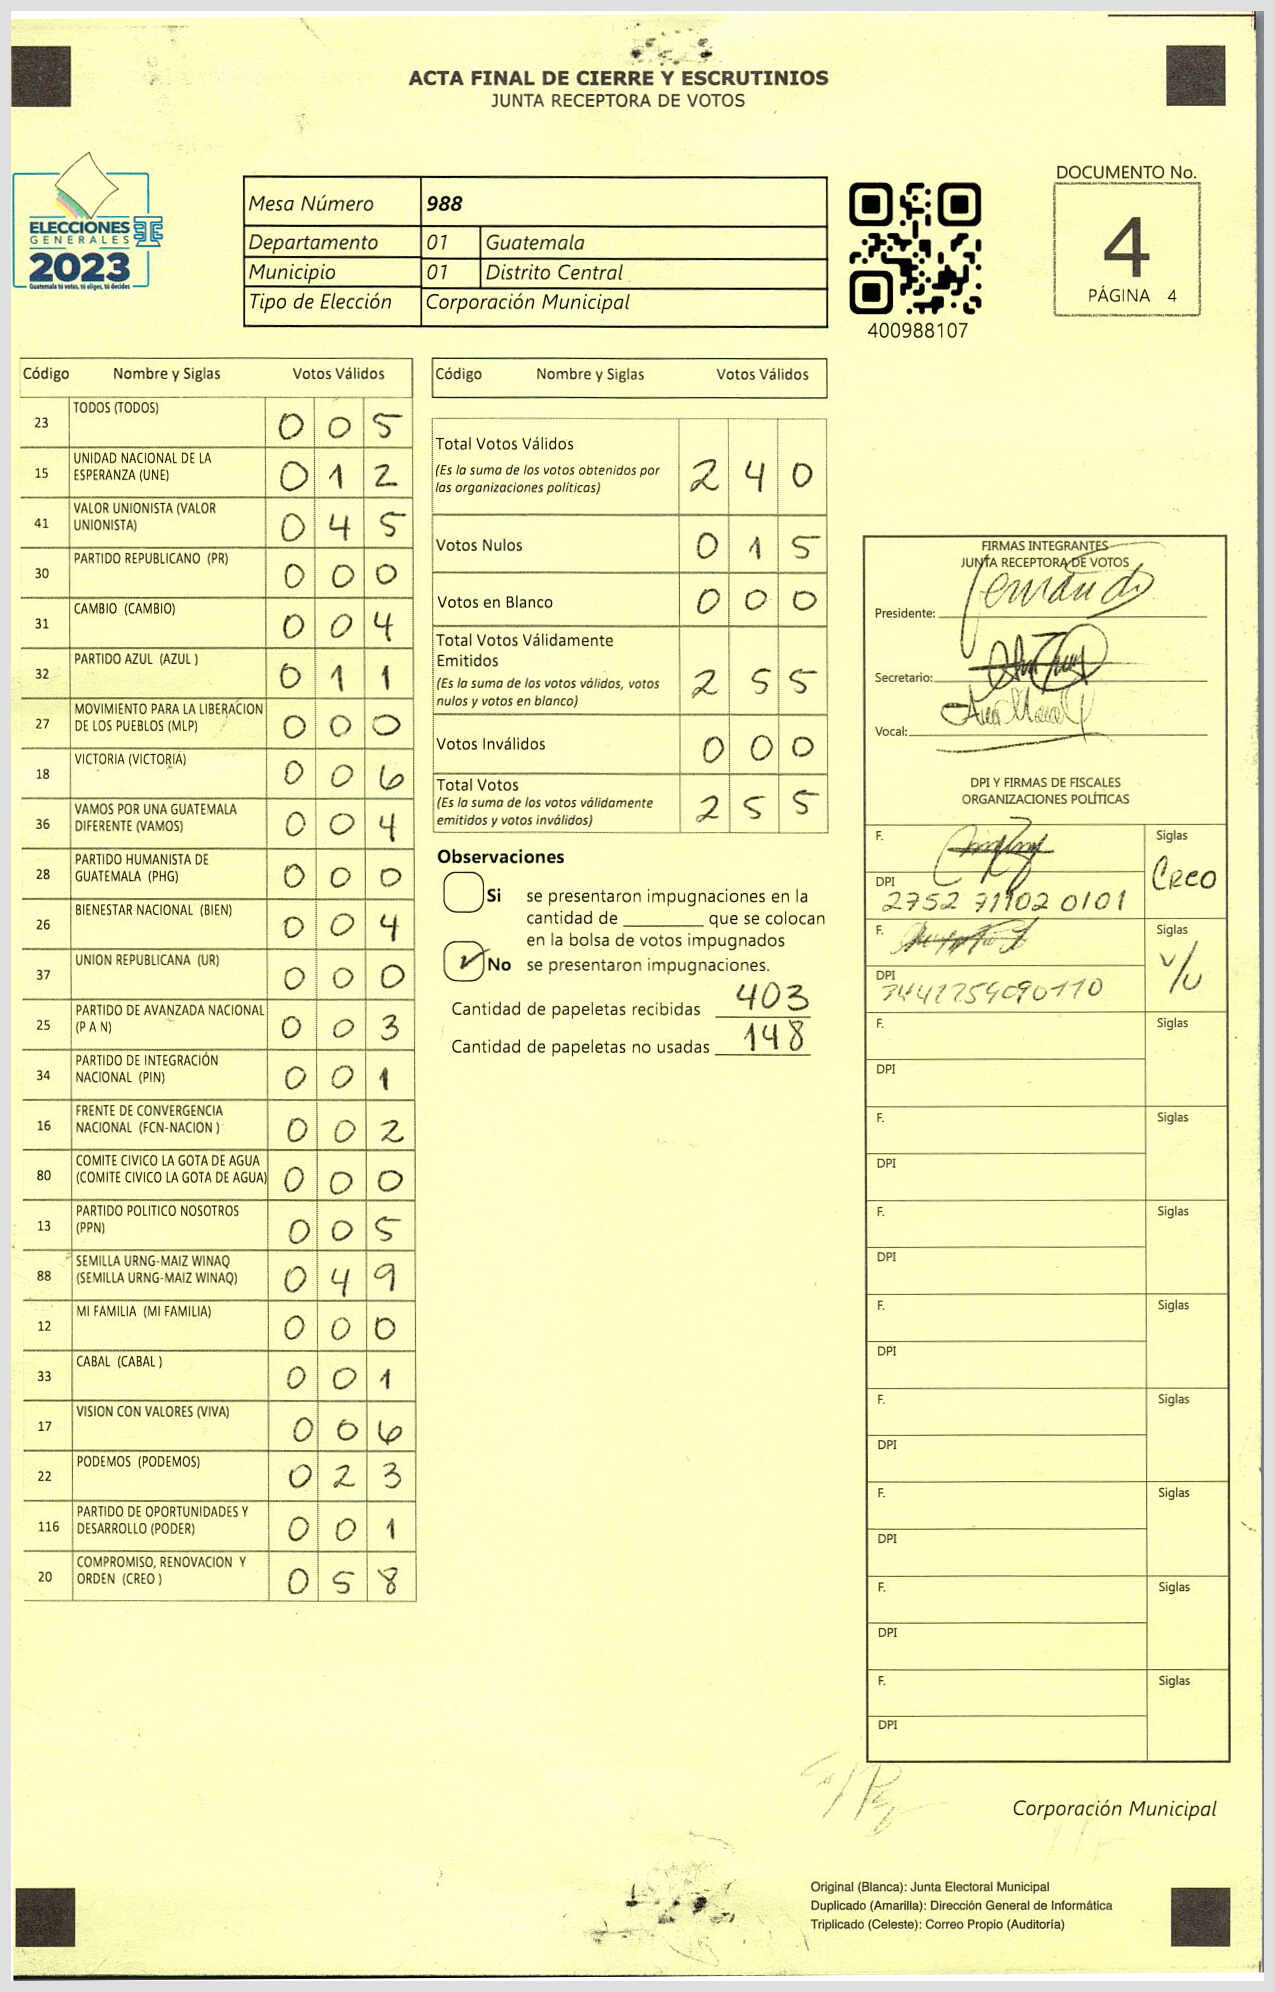 ACTA FINAL DE CIERRE Y ESCRUTINIOS
JUNTA RECEPTORA DE VOTOS
ELECCIONES
GENERALES
2023
Guatemala tú votas, tú eliges, tú decides
Mesa Número 988
Departamento 01 Guatemala
Municipio 01 Distrito Central
Tipo de Elección Corporación Municipal
400988107
DOCUMENTO No.
4
PÁGINA 4
Código Nombre y Siglas Votos Válidos
23 TODOS (TODOS) 0 0 5
15 UNIDAD NACIONAL DE LA
ESPERANZA (UNE) 0 1 2
41 VALOR UNIONISTA (VALOR
UNIONISTA) 0 4 5
30 PARTIDO REPUBLICANO (PR) 0 0 0
31 CAMBIO (CAMBIO) 0 0 4
32 PARTIDO AZUL (AZUL ) 0 1 1
27 MOVIMIENTO PARA LA LIBERACION
DE LOS PUEBLOS (MLP) 0 0 0
18 VICTORIA (VICTORIA) 0 0 6
36 VAMOS POR UNA GUATEMALA
DIFERENTE (VAMOS) 0 0 4
28 PARTIDO HUMANISTA DE
GUATEMALA (PHG) 0 0 0
26 BIENESTAR NACIONAL (BIEN) 0 0 4
37 UNION REPUBLICANA (UR) 0 0 0
25 PARTIDO DE AVANZADA NACIONAL
(P A N) 0 0 3
34 PARTIDO DE INTEGRACIÓN
NACIONAL (PIN) 0 0 1
16 FRENTE DE CONVERGENCIA
NACIONAL (FCN-NACION ) 0 0 2
80 COMITE CIVICO LA GOTA DE AGUA
(COMITE CIVICO LA GOTA DE AGUA) 0 0 0
13 PARTIDO POLITICO NOSOTROS
(PPN) 0 0 5
88 SEMILLA URNG-MAIZ WINAQ
(SEMILLA URNG-MAIZ WINAQ) 0 4 9
12 MI FAMILIA (MI FAMILIA) 0 0 0
33 CABAL (CABAL ) 0 0 1
17 VISION CON VALORES (VIVA) 0 0 6
22 PODEMOS (PODEMOS) 0 2 3
116 PARTIDO DE OPORTUNIDADES Y
DESARROLLO (PODER) 0 0 1
20 COMPROMISO, RENOVACION Y
ORDEN (CREO ) 0 5 8
Código Nombre y Siglas Votos Válidos
Total Votos Válidos 2 4 0
(Es la suma de los votos obtenidos por
las organizaciones políticas)
Votos Nulos 0 1 5
Votos en Blanco 0 0 0
Total Votos Válidamente
Emitidos 2 5 5
(Es la suma de los votos válidos, votos
nulos y votos en blanco)
Votos Inválidos 0 0 0
Total Votos 2 5 5
(Es la suma de los votos válidamente
emitidos y votos inválidos)
Observaciones
Si se presentaron impugnaciones en la
cantidad de ________ que se colocan
en la bolsa de votos impugnados
No se presentaron impugnaciones.
Cantidad de papeletas recibidas 403
Cantidad de papeletas no usadas 148
FIRMAS INTEGRANTES
JUNTA RECEPTORA DE VOTOS
Presidente:
Secretario:
Vocal:
DPI Y FIRMAS DE FISCALES
ORGANIZACIONES POLÍTICAS
F. Siglas
Creo
DPI
2752 71102 0101
F. Siglas
V/U
DPI
F. Siglas
DPI
F. Siglas
DPI
F. Siglas
DPI
F. Siglas
DPI
F. Siglas
DPI
F. Siglas
DPI
F. Siglas
DPI
F. Siglas
DPI
Corporación Municipal
Original (Blanca): Junta Electoral Municipal
Duplicado (Amarilla): Dirección General de Informática
Triplicado (Celeste): Correo Propio (Auditoría)